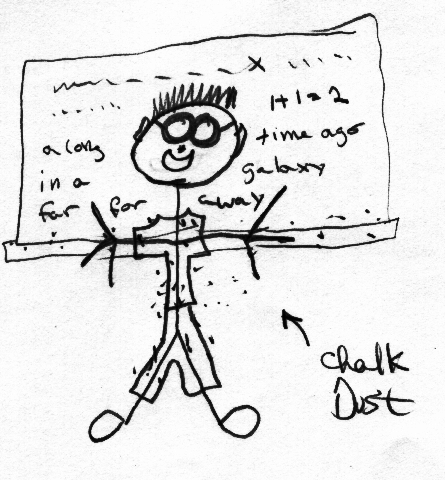 x
1+1=2
a long time ago
in a galaxy
far for away
chalk
Dust